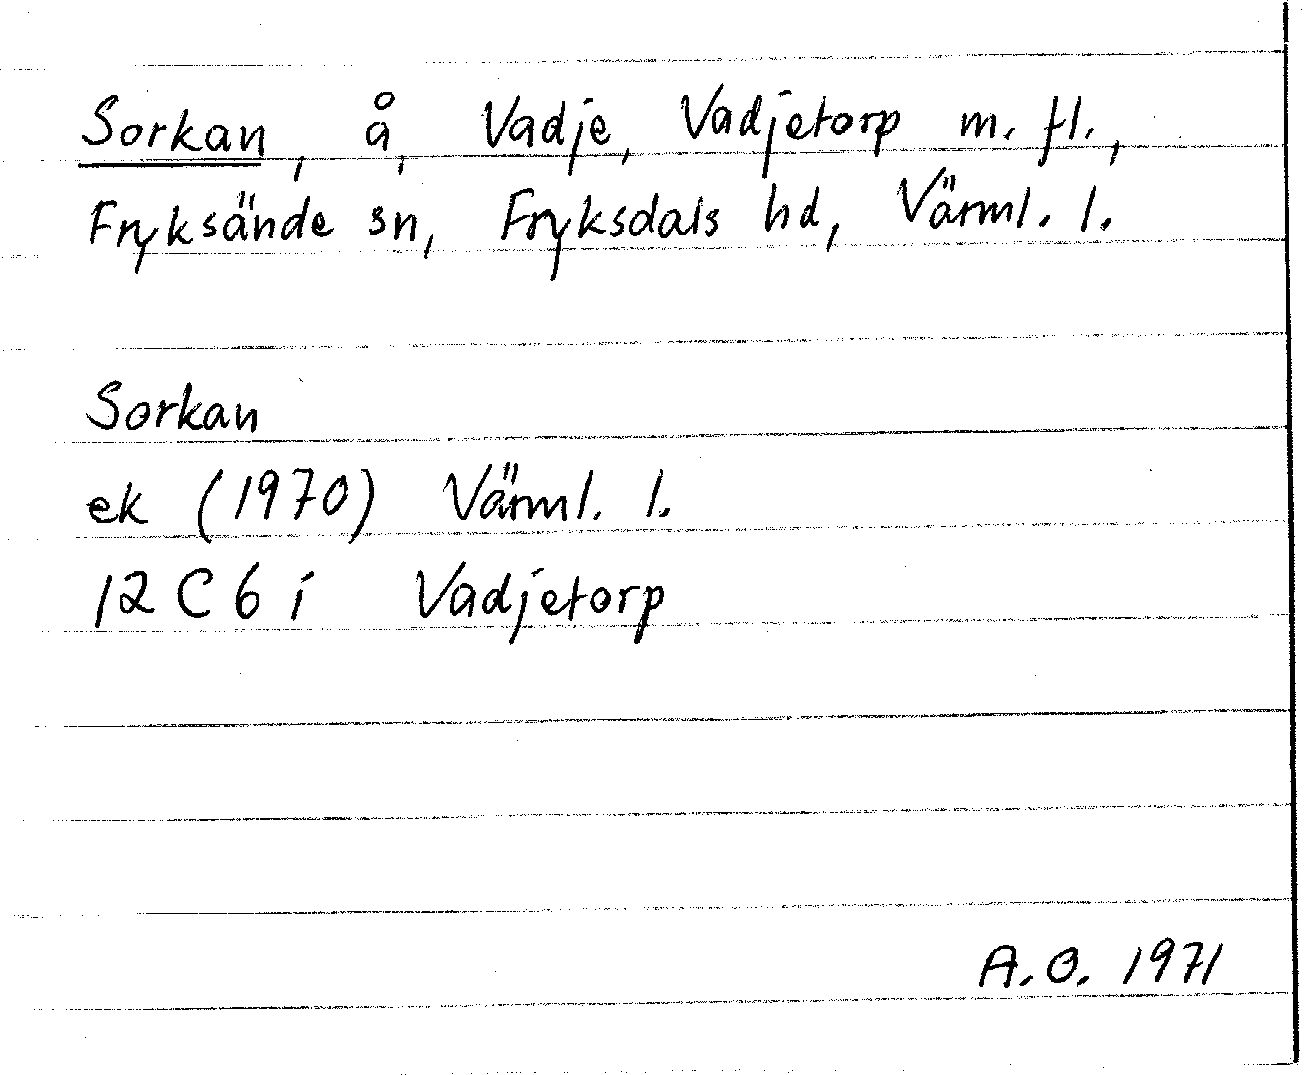 Sorkan, å, Vadje, Vadjetorp m. fl.,
Fryksände sn, Fryksdals hd, Värml. l.
Sorkan
ek (1970) Värml. l.
12 C 6 i Vadjetorp
A.O. 1971